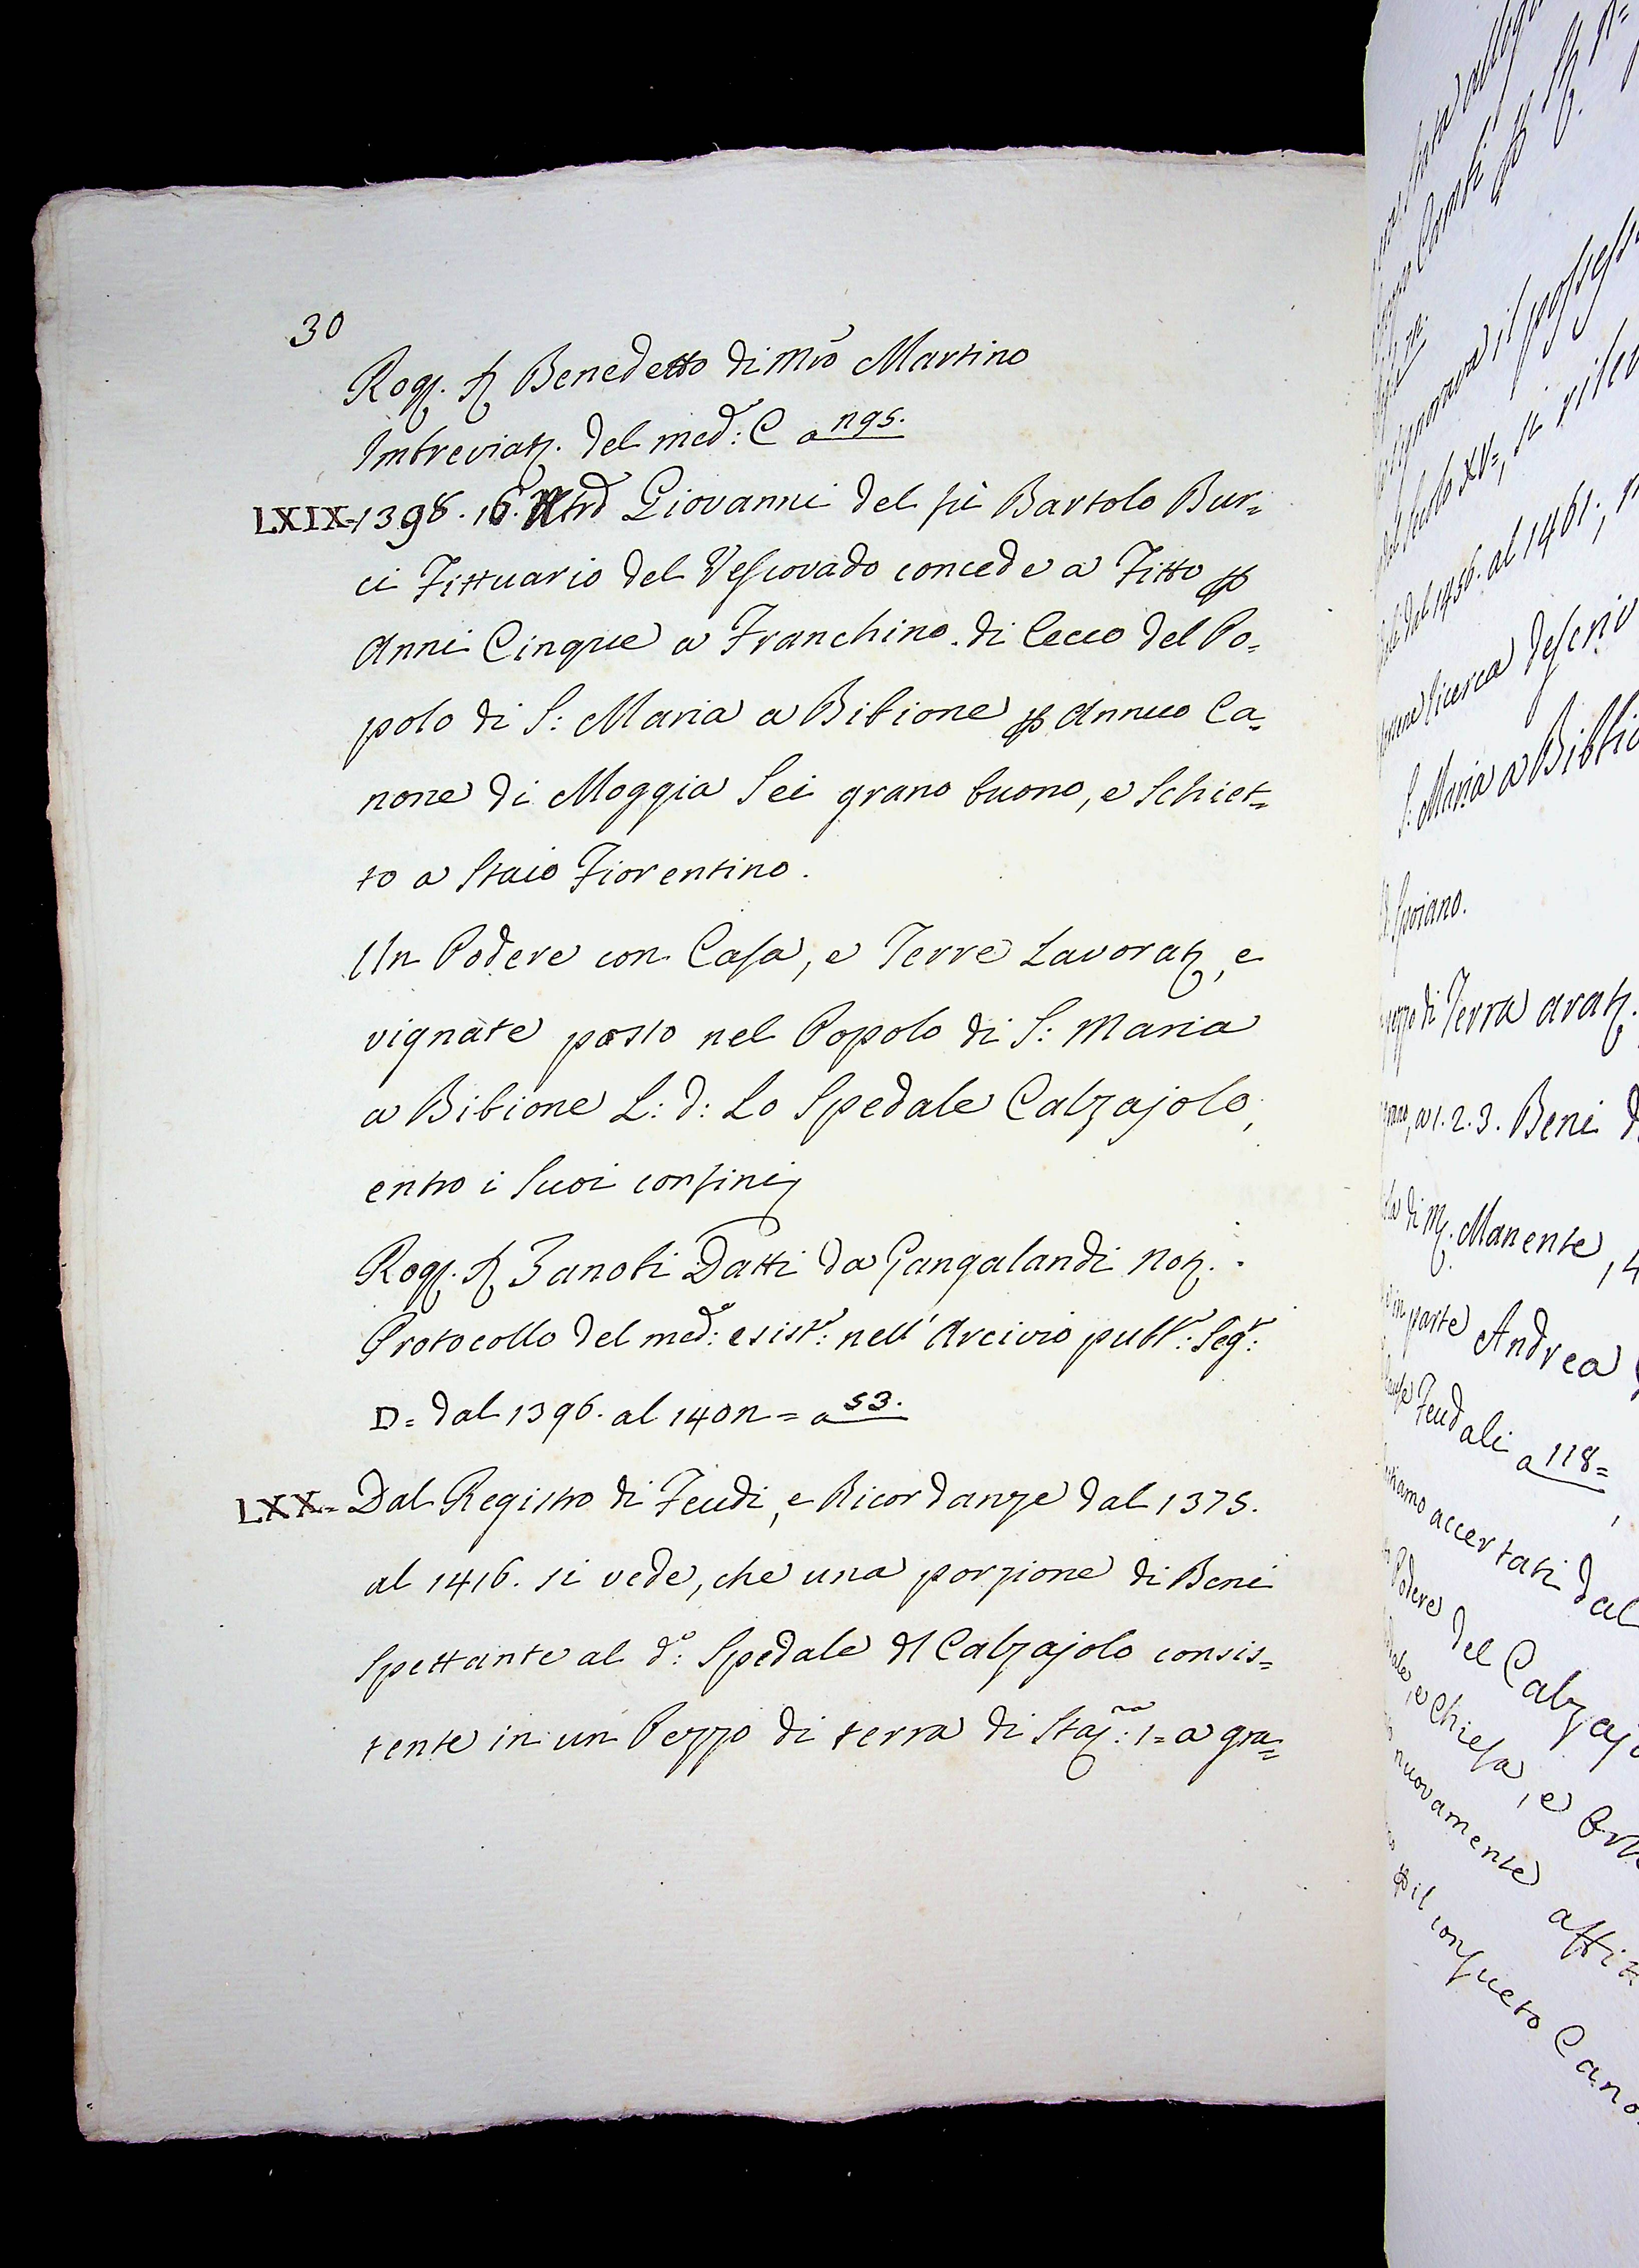 30
Rog. S. Benedetto di Mro Martino
Imbreviaz. del med:o C a 295.
LXIX=1398. 16. Giovanni del fù Bartolo Bur=
ci Fittuario del Vescovado concede a Fitto p
Anni Cinque a Franchino di Cecco del Po=
polo di S: Maria a Bibione p Annuo Ca=
none di Moggia Sei grano buono, e Schiet=
to a Staio Fiorentino.
Un Podere con Casa, e Terre Lavoraz, e
vignate posto nel Popolo di S: Maria
a Bibione L: d: Lo Spedale Calzajolo,
entro i Suoi confini
Rog. S. Zanobi Datti da Gangalandi Not.
Protocollo del med:o esist:e nell' Arcivio pubb:o Seg:o
D= dal 1396. al 1402= a 53.
LXX= Dal Registro di Feudi, e Ricordanze dal 1375.
al 1416. si vede, che una porzione di Beni
Spettante al d:o Spedale di Calzajolo consis=
tente in un Pezzo di terra di Staj:a 1= a gra=
Cambi
il possesso
Secolo XV=, si
dal 1456. al 1461.;
ricerca descriv
S: Maria a Bibbio
di Terra arat.
1. 2. 3. Beni d
di M. Manente,
in parte Andrea
Feudali a 118=
accertati dal
Podere del Calzajo
e Chiesa, e
nuovamente affit
p il consueto Cano